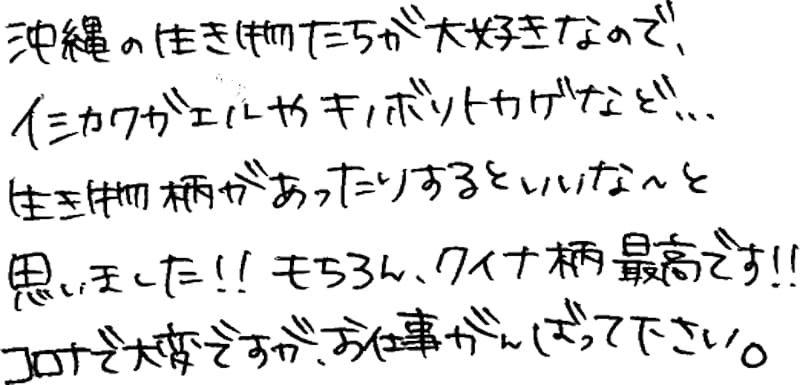 沖縄の生き物たちが大好きなので、
イシカワガエルやキノボリトカゲなど…
生き物柄があったりするといいな〜と
思いました!! もちろん、クイナ柄最高です!!
コロナで大変ですが、お仕事がんばって下さい。